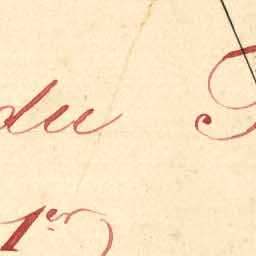 du
1er